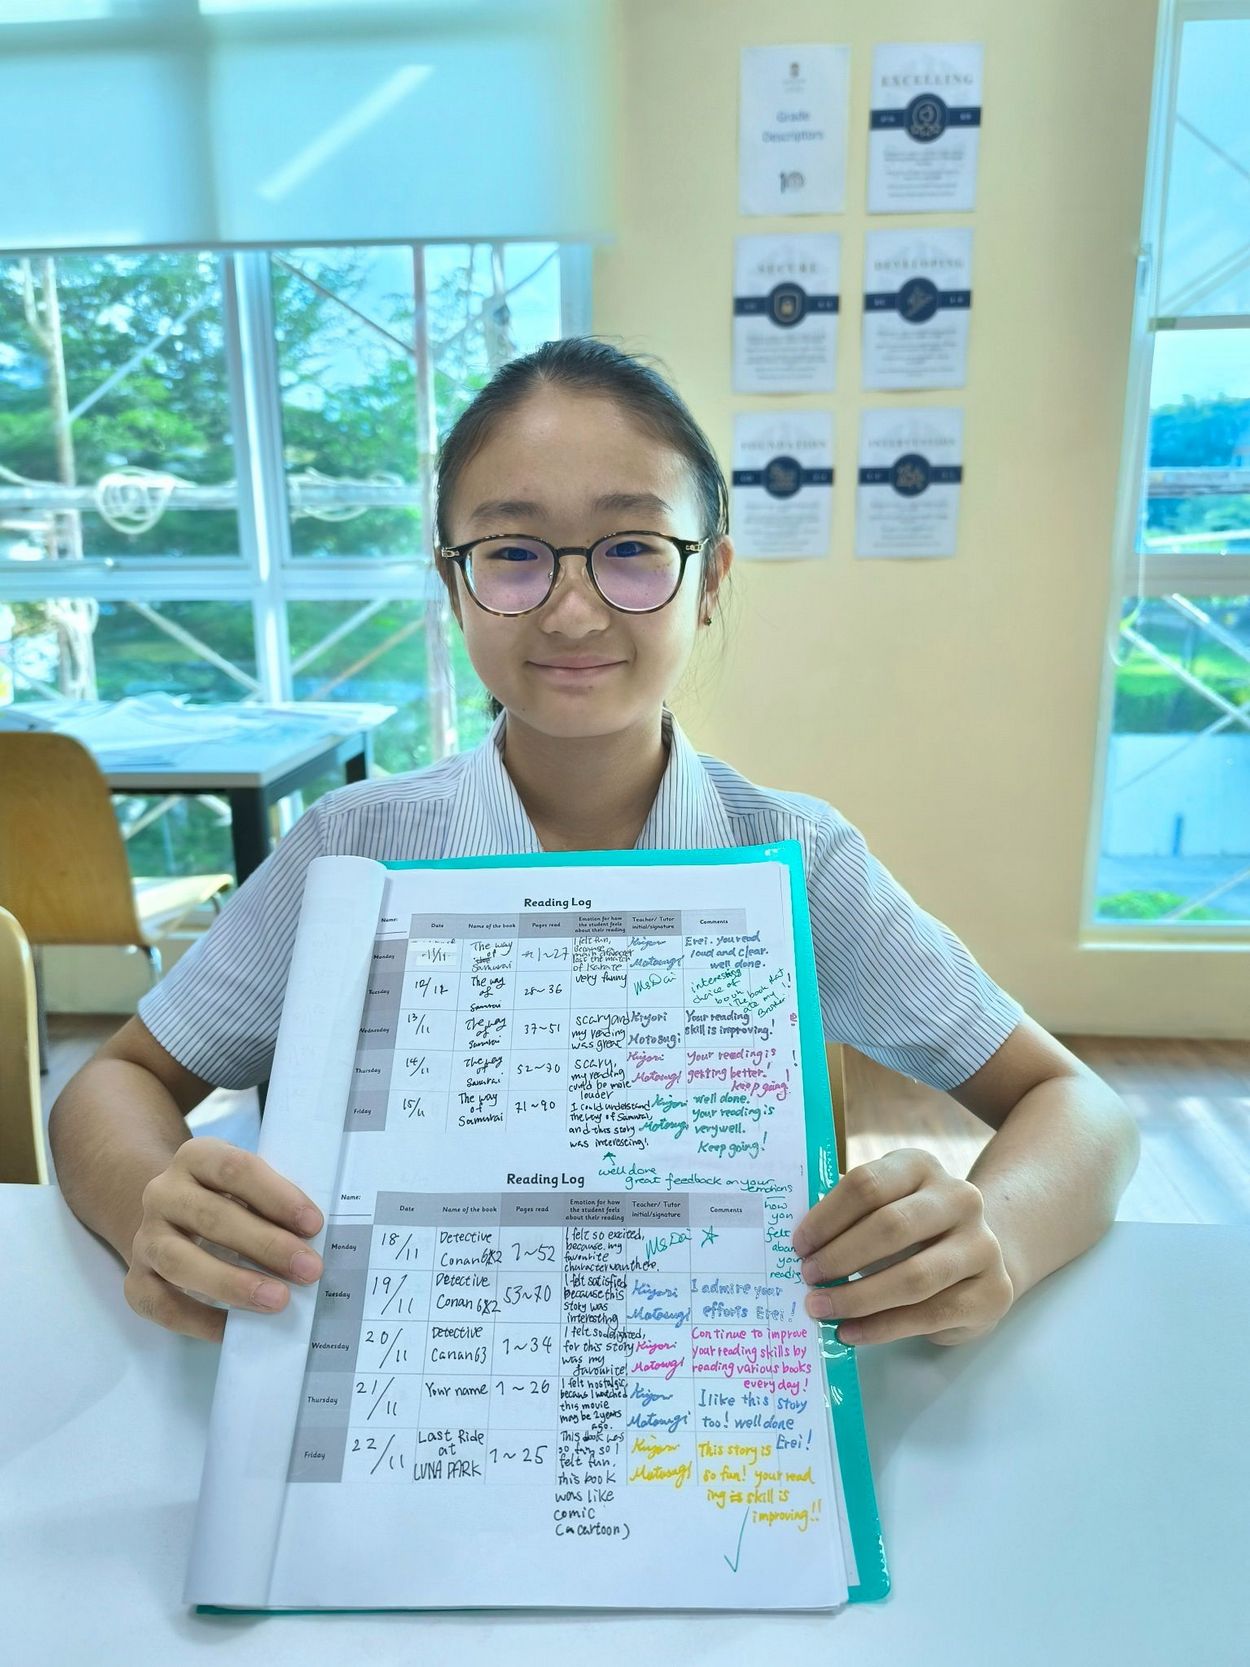 Grade
Descriptors
10
EXCELLING
SECURE
DEVELOPING
FOUNDATION
INTERVENTION
Reading Log
Name:
Date
Name of the book
Pages read
Emotion for how
the student feels
about their reading
Teacher/ Tutor
initial/signature
Comments
Monday
The way
of
Samurai
1~27
I felt fun,
because
main character
last the match
of karate
very funny
Kiyori
Motosugi
Erei. you read
loud and clear.
well done.
Tuesday
12/11
The way
of
Samurai
28~36
Ms Dai
interesting
choice of
book
The book that
ate my
Brother!
Wednesday
13/11
The way
of
Samurai
37~51
scary and
my reading
was great
Kiyori
Motosugi
Your reading
skill is improving!
Thursday
14/11
The way
of
Samurai
52~70
scary,
my reading
could be more
louder
Kiyori
Motosugi
Your reading is
getting better!
keep going!
Friday
15/11
The way
of
Samurai
71~90
I could understand
the way of Samurai,
and this story
was interesting!
Kiyori
Motosugi
well done.
your reading is
very well.
Keep going!
well done
great feedback on your
emotions
how
you
felt
about
your
reading
Reading Log
Name:
Date
Name of the book
Pages read
Emotion for how
the student feels
about their reading
Teacher/ Tutor
initial/signature
Comments
Monday
18/11
Detective
Conan 62
1~52
I felt so excited,
because my
favourite
character was there.
Ms Dai
Tuesday
19/11
Detective
Conan 62
53~70
I felt satisfied
because this
story was
interesting
Kiyori
Motosugi
I admire your
efforts Erei!
Wednesday
20/11
Detective
Conan 63
1~34
I felt so delighted,
for this story
was my
favourite!
Kiyori
Motosugi
Continue to improve
your reading skills by
reading various books
everyday!
Thursday
21/11
Your name
1~26
I felt nostalgic,
becaus I watched
this movie
may be 2 years
ago.
Kiyori
Motosugi
I like this story
too! well done
Erei!
Friday
22/11
Last Ride
at
LUNA PARK
1~25
This book was
so fun, so I
felt fun.
this book
was like
comic
(a cartoon)
Kiyori
Motosugi
This story is
so fun! your read
ing is skill is
improving!!